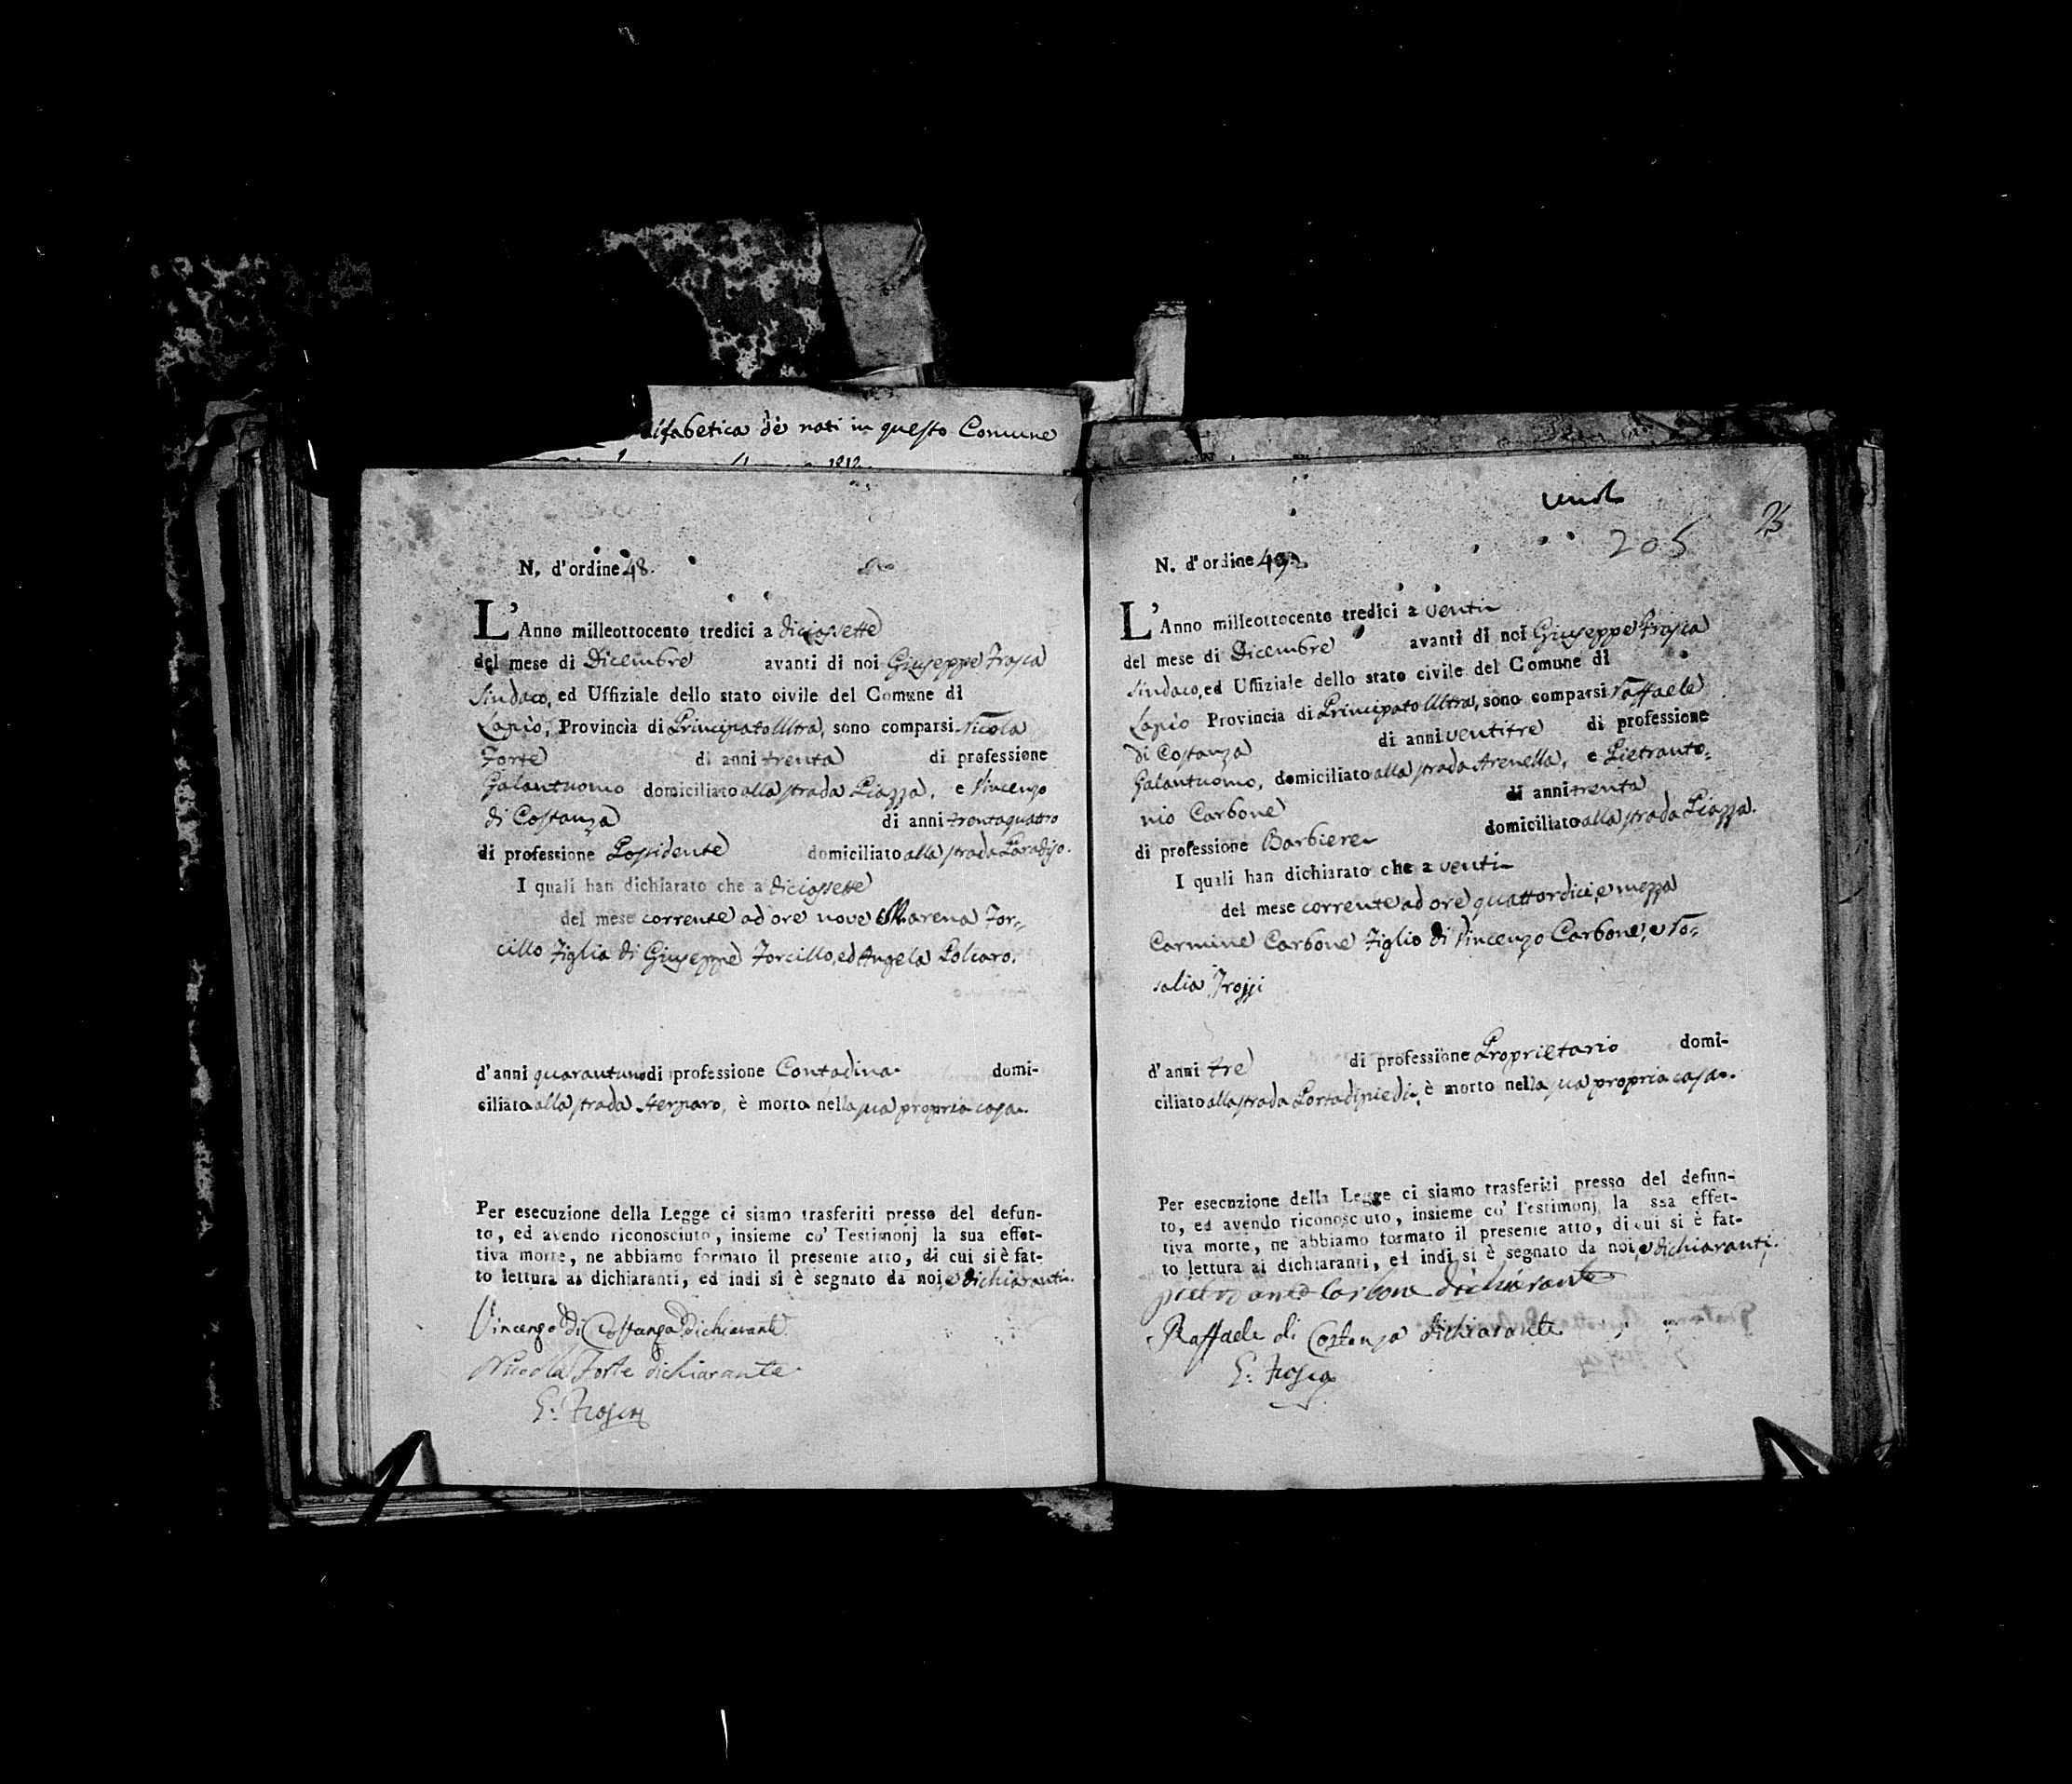 alfabetica de nati in questo Comune
N. d'ordine 48.
L'Anno milleottocento tredici a diciassette
del mese di Dicembre avanti di noi Giuseppe Frosca
Sindaco, ed Uffiziale dello stato civile del Comune di
Lapio, Provincia di Principato Ultra, sono comparsi Nicola
Forte di anni trenta di professione
Galantuomo domiciliato alla strada Piazza, e Vincenzo
di Costanza di anni trentaquattro
di professione Possidente domiciliato alla strada Paradiso.
I quali han dichiarato che a diciassette
del mese corrente ad ore nove Marena For-
cillo Figlia di Giuseppe Forcillo, ed Angela Polcaro.
d'anni quarantuno di professione Contadina domi-
ciliata alla strada è morta nella sua propria casa.
Per esecuzione della Legge ci siamo trasferiti presso del defun-
to, ed avendo riconosciuto, insieme co' Testimonj la sua effet-
tiva morte, ne abbiamo formato il presente atto, di cui si è fat-
to lettura ai dichiaranti, ed indi si è segnato da noi, e dichiaranti.
Vincenzo di Costanza dichiarante
Nicola Forte dichiarante
G: Frosca
205
N. d'ordine 49.
L'Anno milleottocento tredici a venti
del mese di Dicembre avanti di noi Giuseppe Frosca
Sindaco, ed Uffiziale dello stato civile del Comune di
Lapio Provincia di Principato Ultra, sono comparsi Raffaele
di Costanza di anni ventitre di professione
Galantuomo, domiciliato alla strada Arenella, e Pietranto-
nio Carbone di anni trenta
di professione Barbiere domiciliato alla strada Piazza.
I quali han dichiarato che a venti
del mese corrente ad ore quattordici, e mezza
Carmine Carbone Figlio di Vincenzo Carbone, e Ro-
salia Trozzi
d'anni tre di professione Proprietario domi-
ciliato alla strada Portadipiedi, è morto nella sua propria casa.
Per esecuzione della Legge ci siamo trasferiti presso del defun-
to, ed avendo riconosciuto, insieme co' Testimonj la sua effet-
tiva morte, ne abbiamo formato il presente atto, di cui si è fat-
to lettura ai dichiaranti, ed indi si è segnato da noi, e dichiaranti.
pietro ant.o Carbone dichiarante
Raffaele di Costanza dichiarante
G: Frosca